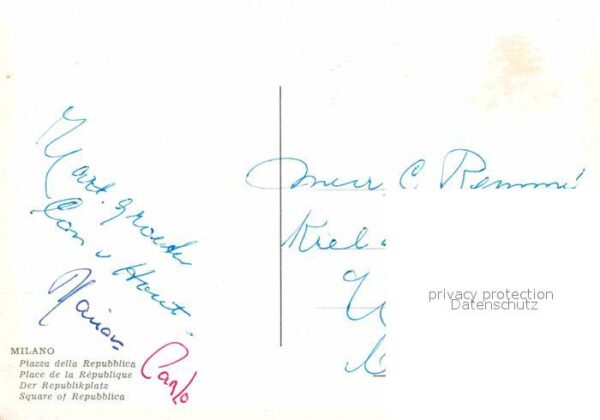 Hart. groeten
Con v Hout.
Marion
Carlo
MILANO
Piazza della Repubblica
Place de la République
Der Republikplatz
Square of Repubblica
C. Remmé
Kiel
privacy protection
Datenschutz